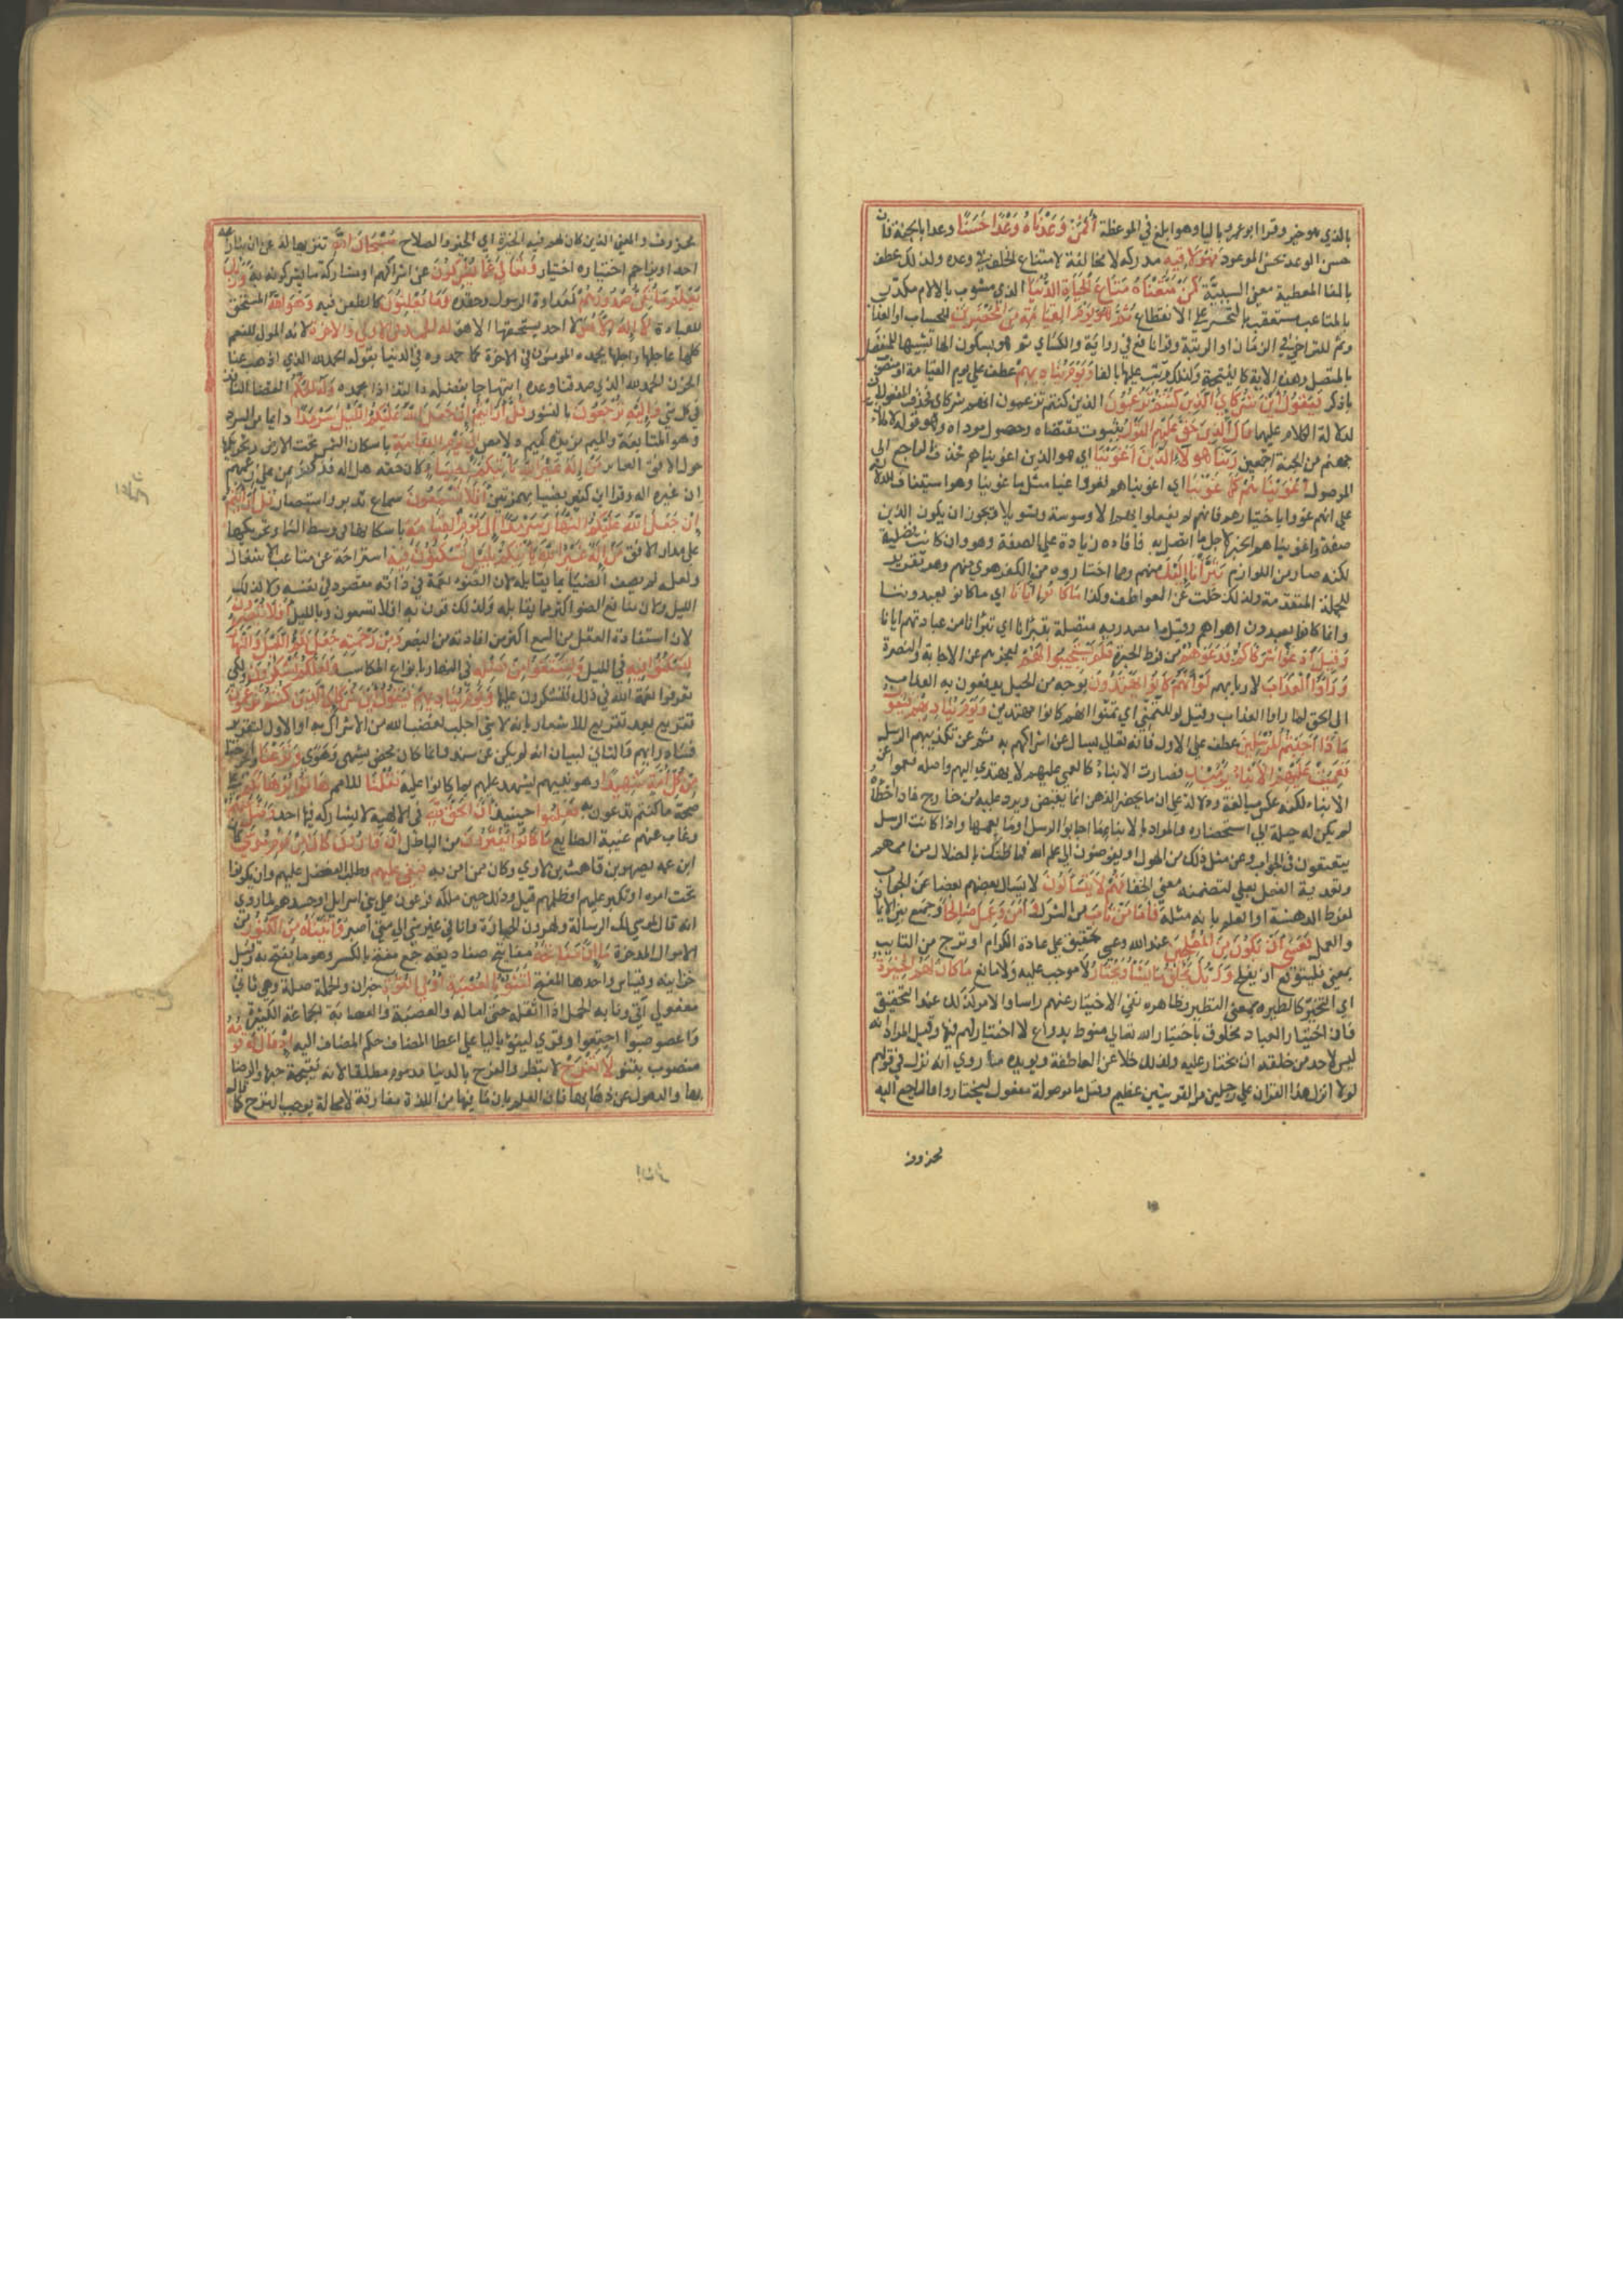 بالذي هو خير وقرا ابو عمرو باليا وهو ابلغ في الموعظة أَفَمَنْ وَعَدْنَاهُ وَعْدًا حَسَنًا وعدا بالجنة فان
حسن الوعد بحسن الموعود فَهُوَ لَاقِيهِ مدركه لا محالة لامتناع الخلف في وعده ولذلك عطف
بالفا المعطية معنى السببية كَمَنْ مَتَّعْنَاهُ مَتَاعَ الْحَيَاةِ الدُّنْيَا الذي مشوب بالالام مكدر
بالمتاعب مستعقب بالتحسر على الانقطاع ثُمَّ هُوَ يَوْمَ الْقِيَامَةِ مِنَ الْمُحْضَرِينَ للحساب او العذاب
وثم للتراخي في الزمان او الرتبة وقرا نافع في رواية والكسائي ثم هو بسكون الها تشبيها للمنفصل
بالمتصل وهذه الاية كالنتيجة ولذلك رتب عليها بالفا وَيَوْمَ يُنَادِيهِمْ عطف على يوم القيامة او منصوب
باذكر فَيَقُولُ أَيْنَ شُرَكَائِيَ الَّذِينَ كُنْتُمْ تَزْعُمُونَ الذين كنتم تزعمون انهم شركاي فحذف المفعولان
لدلالة الكلام عليهما قَالَ الَّذِينَ حَقَّ عَلَيْهِمُ الْقَوْلُ بثبوت مقتضاه وحصول موداه وهو قوله لاملان
جهنم من الجنة اجمعين رَبَّنَا هَؤُلَاءِ الَّذِينَ أَغْوَيْنَا اي هو الذين اغويناهم فحذف الراجع الى
الموصول أَغْوَيْنَاهُمْ كَمَا غَوَيْنَا اي اغويناهم فغووا غيا مثل ما غوينا وهو استيناف للدلالة
على انهم غووا باختيارهم فانهم لم يفعلوا بهم الا وسوسة وتسويلا ويجوز ان يكون الذين
صفة واغويناهم الخبر لاجل ما اتصل به فافاده زيادة على الصفة وهو وان كان فضلة
لكنه صار من اللوازم تَبَرَّأْنَا إِلَيْكَ منهم ومما اختاروه من الكفر هوى منهم وهو تقرير
للجملة المتقدمة ولذلك خلت عن العواطف وكذا مَا كَانُوا إِيَّانَا اي ما كانوا يعبدوننا
وانما كانوا يعبدون اهواهم وقيل ما مصدرية متصلة بتبرانا اي تبرانا من عبادتهم ايانا
وَقِيلَ ادْعُوا شُرَكَاءَكُمْ فَدَعَوْهُمْ من فرط الحيرة فَلَمْ يَسْتَجِيبُوا لَهُمْ لعجزهم عن الاجابة والنصرة
وَرَأَوُا الْعَذَابَ لازبا بهم لَوْ أَنَّهُمْ كَانُوا يَهْتَدُونَ بوجه من الحيل يدفعون به العذاب
الى الحق لما راوا العذاب وقيل لو للتمني اي تمنوا انهم كانوا مهتدين وَيَوْمَ يُنَادِيهِمْ فَيَقُولُ
مَاذَا أَجَبْتُمُ الْمُرْسَلِينَ عطف على الاول فانه تعالى يسال عن اشراكهم به ثم عن تكذيبهم الرسل
فَعَمِيَتْ عَلَيْهِمُ الْأَنْبَاءُ يَوْمَئِذٍ فصارت الانباء كالعمى عليهم لا يهتدي اليهم واصله فعموا عن
الانباء لكنه عكس مبالغة ودلالة على ان ما يحضر الذهن انما يفيض ويرد عليه من خارج فاذا اخطاه
لم يكن له حيلة الى استحضاره والمراد بالانباء ما اجابوا الرسل او ما يعمها واذا كانت الرسل
يتعتعون في الجواب عن مثل ذلك من الهول او يفوضون الى علم الله فما ظنك بالضلال من اممهم
وتعدية الفعل بعلى لتضمنه معنى الخفا فَهُمْ لَا يَتَسَاءَلُونَ لا يسال بعضهم بعضا عن الجواب
لفرط الدهشة او العلم بانه مثله فَأَمَّا مَنْ تَابَ من الشرك وَآمَنَ وَعَمِلَ صَالِحًا وجمع بين الايمان
والعمل فَعَسَى أَنْ يَكُونَ مِنَ الْمُفْلِحِينَ عند الله وعسى تحقيق على عادة الكرام او ترج من التايب
بمعنى فليتوقع ان يفلح وَرَبُّكَ يَخْلُقُ مَا يَشَاءُ وَيَخْتَارُ لا موجب عليه ولا مانع مَا كَانَ لَهُمُ الْخِيَرَةُ
اي التخير كالطيرة بمعنى التطير وظاهره نفي الاختيار عنهم راسا والامر كذلك عند التحقيق
فان اختيار العباد مخلوق باختيار الله تعالى منوط بدواع لا اختيار لهم فيها وقيل المراد انه
ليس لاحد من خلقه ان يختار عليه ولذلك خلا عن العاطفة ويويده ما روي انه نزل في قولهم
لولا انزل هذا القران على رجل من القريتين عظيم وقيل ما موصولة مفعول ليختار والراجع اليه
محذوف
محذوف والمعنى الذين كان لهم فيه الخيرة اي الخير والصلاح سُبْحَانَ اللَّهِ تنزيها له عن ان ينازعه
احد او يزاحم اختياره اختيار وَتَعَالَى عَمَّا يُشْرِكُونَ عن اشراكهم او مشاركة ما يشركونه به وَرَبُّكَ
يَعْلَمُ مَا تُكِنُّ صُدُورُهُمْ كعداوة الرسول وحقده وَمَا يُعْلِنُونَ كالطعن فيه وَهُوَ اللَّهُ المستحق
للعبادة لَا إِلَهَ إِلَّا هُوَ لا احد يستحقها الا هو لَهُ الْحَمْدُ فِي الْأُولَى وَالْآخِرَةِ لانه المولى للنعم
كلها عاجلها واجلها يحمده المومنون في الاخرة كما حمدوه في الدنيا بقوله الحمد لله الذي اذهب عنا
الحزن الحمد لله الذي صدقنا وعده ابتهاجا بفضله والتذاذا بحمده وَلَهُ الْحُكْمُ القضا النافذ
في كل شي وَإِلَيْهِ تُرْجَعُونَ بالنشور قُلْ أَرَأَيْتُمْ إِنْ جَعَلَ اللَّهُ عَلَيْكُمُ اللَّيْلَ سَرْمَدًا دايما من السرد
وهو المتابعة والميم مزيدة كميم دلامص إِلَى يَوْمِ الْقِيَامَةِ باسكان الشمس تحت الارض او تحريكها
حول الافق الغاير مَنْ إِلَهٌ غَيْرُ اللَّهِ يَأْتِيكُمْ بِضِيَاءٍ كان حقه هل اله فذكر بمن على زعمهم
ان غيره الهة وقرا ابن كثير بضياء بهمزتين أَفَلَا تَسْمَعُونَ سماع تدبر واستبصار قُلْ أَرَأَيْتُمْ
إِنْ جَعَلَ اللَّهُ عَلَيْكُمُ النَّهَارَ سَرْمَدًا إِلَى يَوْمِ الْقِيَامَةِ باسكانها في وسط السما او تحريكها
على مدار الافق مَنْ إِلَهٌ غَيْرُ اللَّهِ يَأْتِيكُمْ بِلَيْلٍ تَسْكُنُونَ فِيهِ استراحة عن متاعب الاشغال
ولعله لم يصف الضيا بما يقابله لان الضوء نعمة في ذاته مقصود في نفسه ولا كذلك
الليل ولان منافع الضو اكثر مما يقابله ولذلك قرن به افلا تسمعون وبالليل أَفَلَا تُبْصِرُونَ
لان استفادة العقل من السمع اكثر من افادته من البصر وَمِنْ رَحْمَتِهِ جَعَلَ لَكُمُ اللَّيْلَ وَالنَّهَارَ
لِتَسْكُنُوا فِيهِ في الليل وَلِتَبْتَغُوا مِنْ فَضْلِهِ في النهار بانواع المكاسب وَلَعَلَّكُمْ تَشْكُرُونَ ولكي
تعرفوا نعمة الله في ذلك فتشكرون عليها وَيَوْمَ يُنَادِيهِمْ فَيَقُولُ أَيْنَ شُرَكَائِيَ الَّذِينَ كُنْتُمْ تَزْعُمُونَ
تقريع بعد تقريع للاشعار بانه لا شي اجلب لغضب الله من الاشراك به او الاول لتقرير
فساد رايهم والثاني لبيان انه لم يكن عن سند وانما كان محض تشهي وهوى وَنَزَعْنَا واخرجنا
مِنْ كُلِّ أُمَّةٍ شَهِيدًا وهو نبيهم يشهد عليهم بما كانوا عليه فَقُلْنَا للامم هَاتُوا بُرْهَانَكُمْ على
صحة ما كنتم تدعون به فَعَلِمُوا حينيذ أَنَّ الْحَقَّ لِلَّهِ في الالهية لا يشاركه فيها احد وَضَلَّ عَنْهُمْ
وغاب عنهم غيبة الضايع مَا كَانُوا يَفْتَرُونَ من الباطل إِنَّ قَارُونَ كَانَ مِنْ قَوْمِ مُوسَى كان
ابن عمه يصهر بن قاهث بن لاوي وكان ممن امن به فَبَغَى عَلَيْهِمْ وطلب الفضل عليهم وان يكونوا
تحت امره او تكبر عليهم او ظلمهم قيل وذلك حين ملكه فرعون على بني اسرايل او حسدهم لما روي
انه قال لموسى لك الرسالة ولهرون الحبارة وانا في غير شي الى متى اصبر وَآتَيْنَاهُ مِنَ الْكُنُوزِ من
الاموال المدخرة مَا إِنَّ مَفَاتِحَهُ مفاتيح صناديقه جمع مفتح بالكسر وهو ما يفتح به وقيل
خزاينه وقياس واحدها المفتح لَتَنُوءُ بِالْعُصْبَةِ أُولِي الْقُوَّةِ خبر ان والجملة صلة وهي ثاني
مفعولي اتى وناء به الحمل اذا اثقله حتى اماله والعصبة والعصابة الجماعة الكثيرة
واعصوصبوا اجتمعوا وقري لينوء باليا على اعطا المضاف حكم المضاف اليه إِذْ قَالَ لَهُ قَوْمُهُ
منصوب بتنو لَا تَفْرَحْ لا تبطر والفرح بالدنيا مذموم مطلقا لانه نتيجة حبها والرضا
بها والذهول عن ذهابها فان العلم بان ما فيها من اللذة مفارقة لا محالة يوجب الترح كما قال